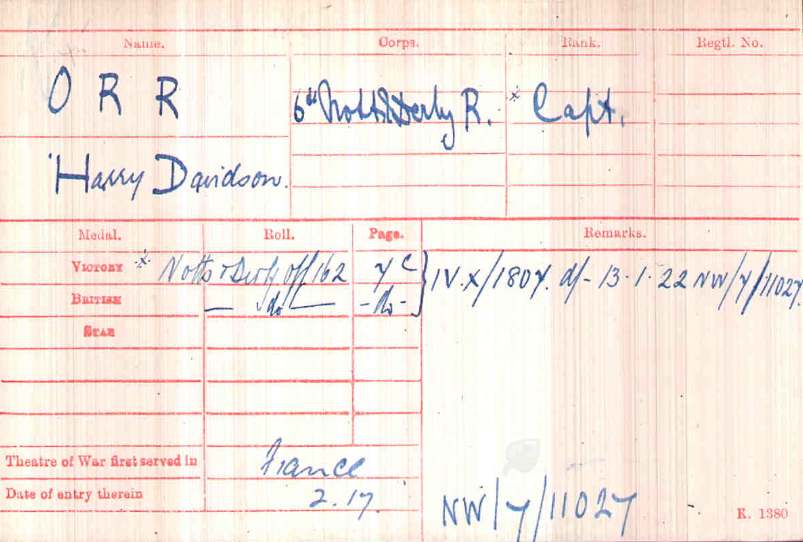 Name. Corps. Rank. Regtl. No.
ORR 6th Notts & Derby R. * Capt.
Harry Davidson.
Medal. Roll. Page. Remarks.
VICTORY * Notts & Derby Off/162 7 C } IV.X/1807. d/- 13.1.22 NW/7/11027
BRITISH — do — - do -
STAR
Theatre of War first served in France
Date of entry therein 2.17.
NW/7/11027
K. 1380